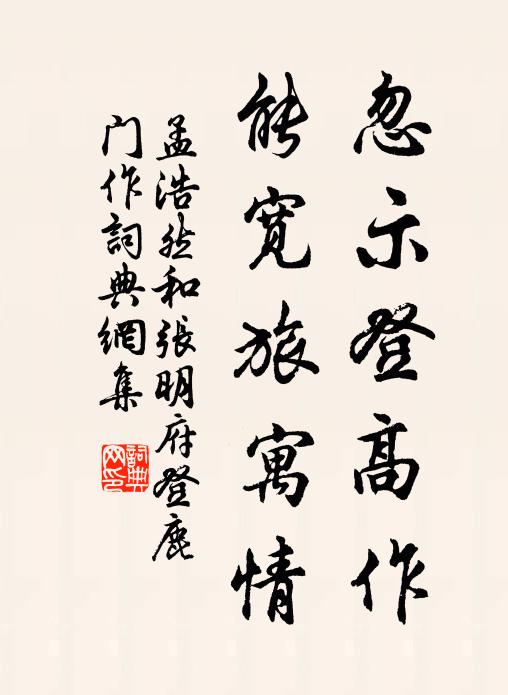 忽示登高作
能寬旅寓情
孟浩然和張明府登鹿
门作詞典網集
詞典
网印